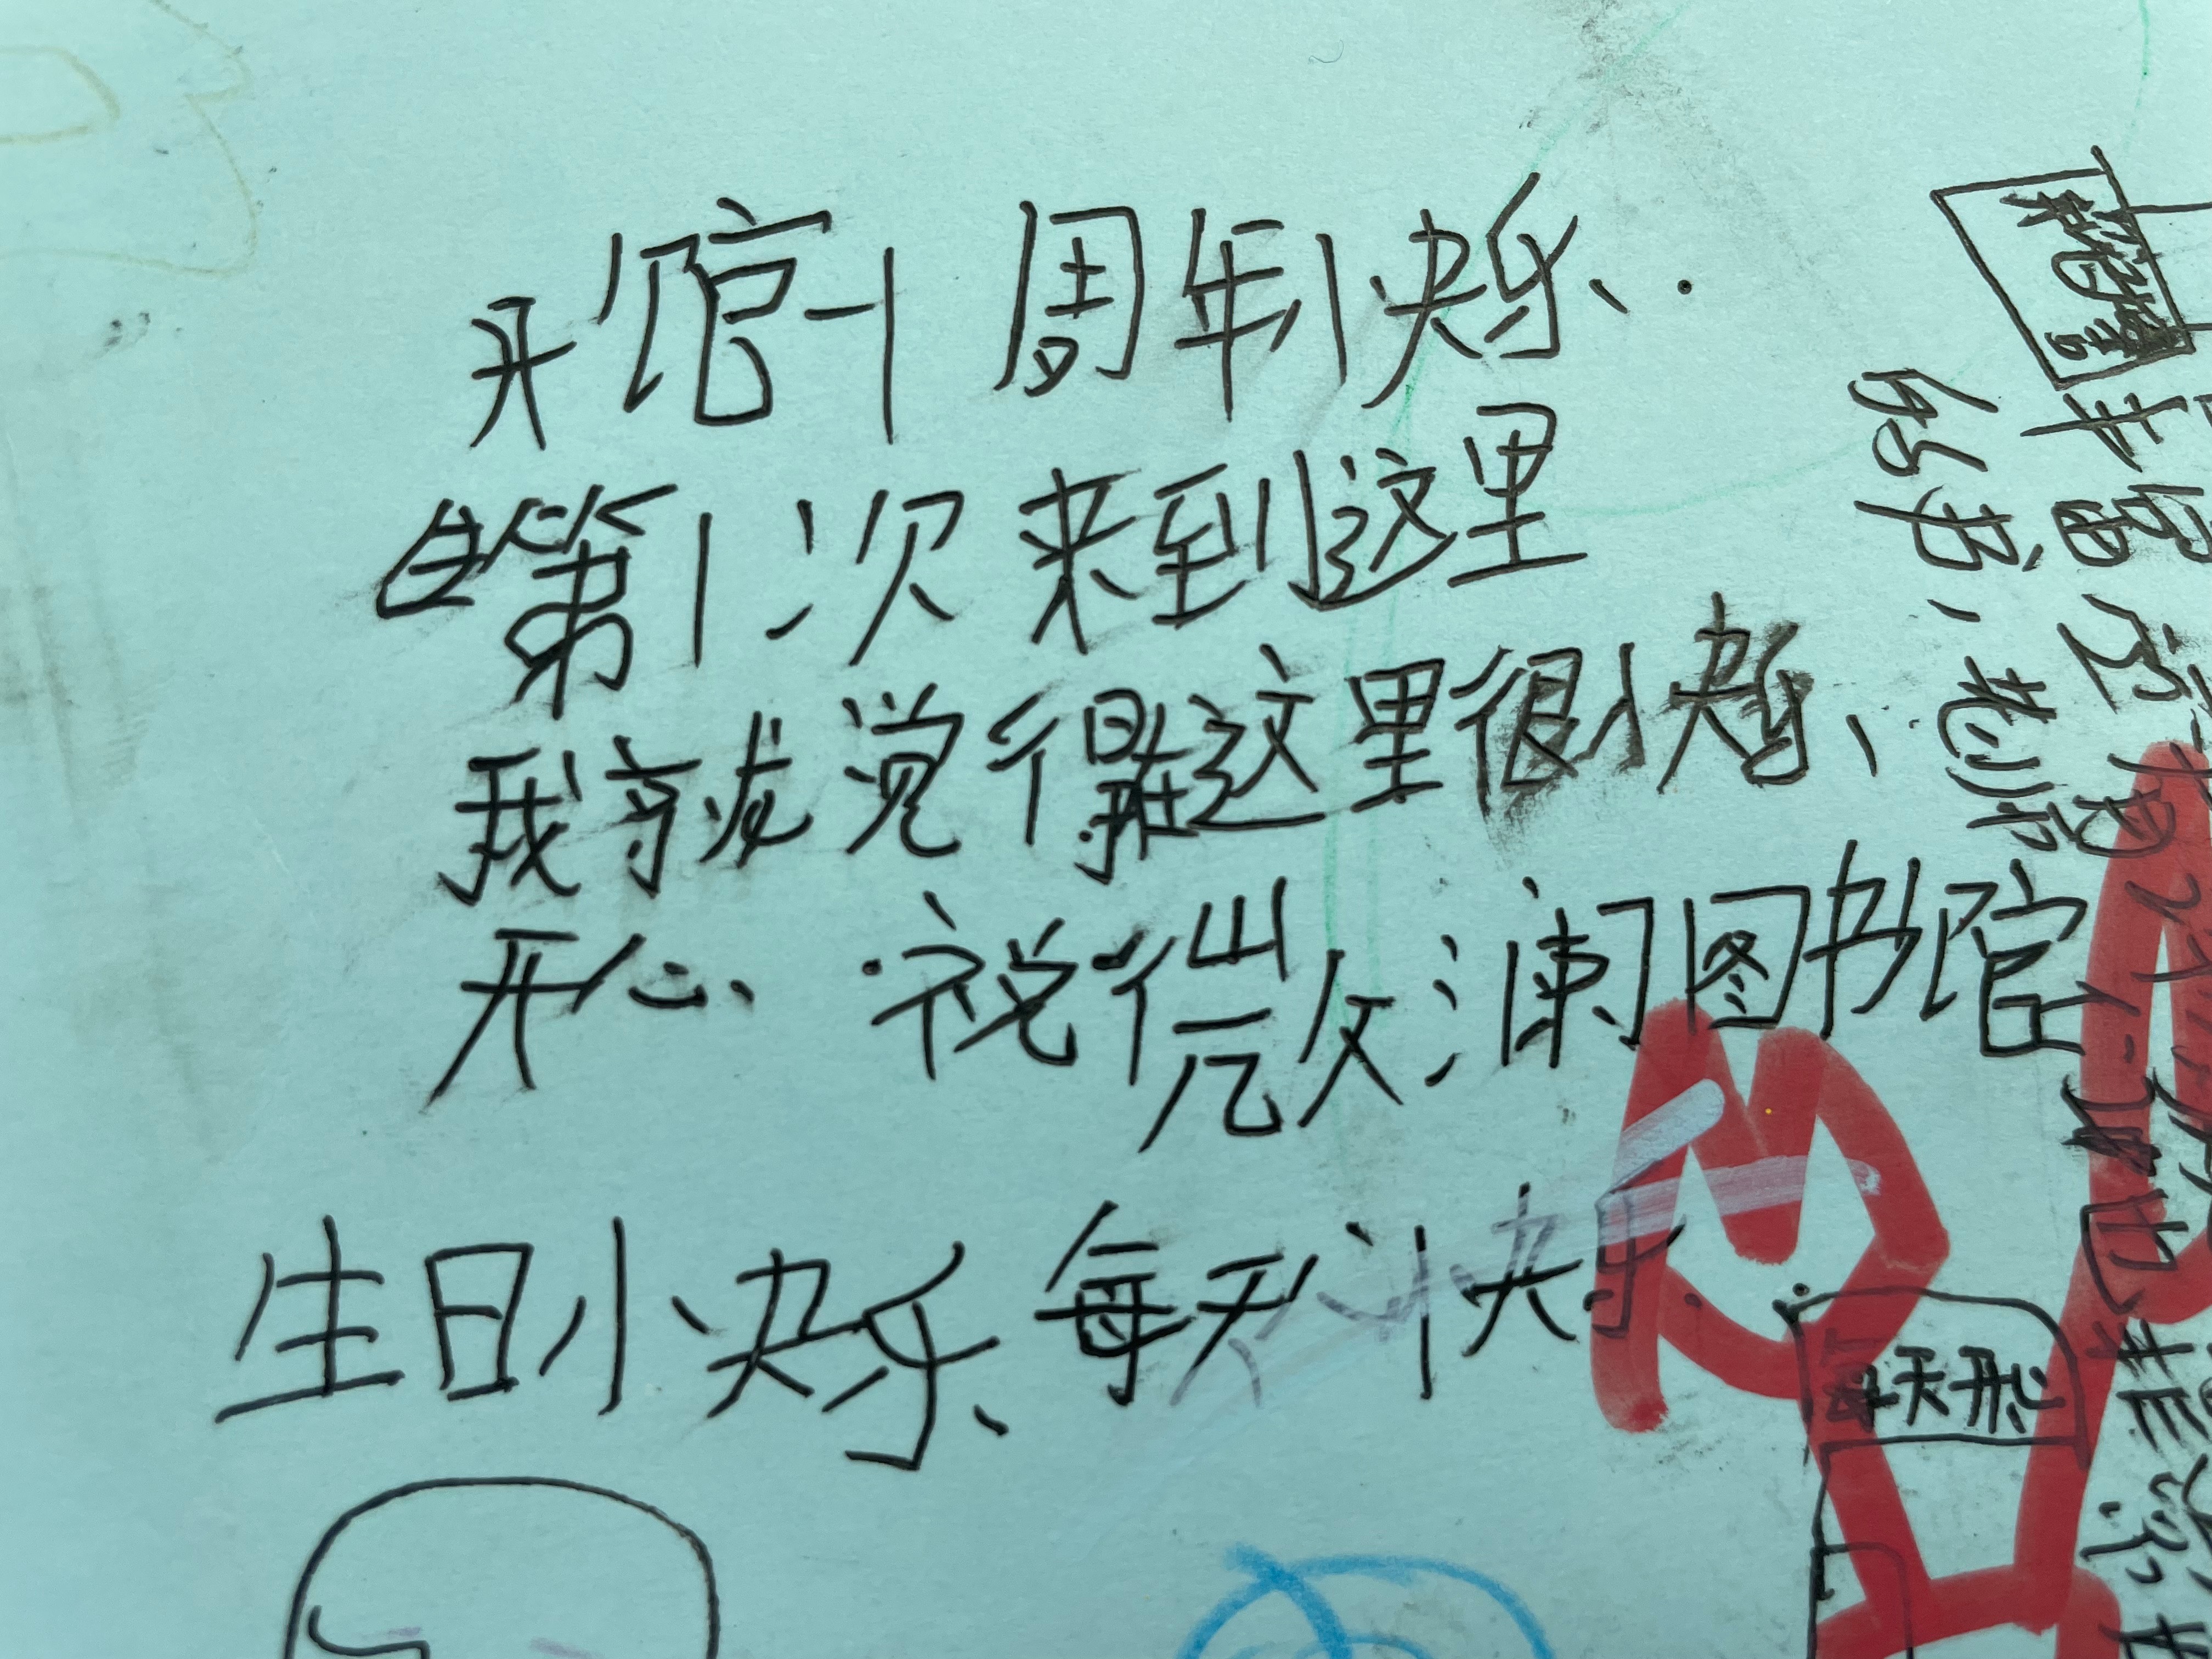 开馆十周年快乐.
第1次来到这里
我就觉得在这里很快乐、
开心. 祝微澜图书馆
生日快乐、每天快乐.
每天开心
丰富
的书,老师